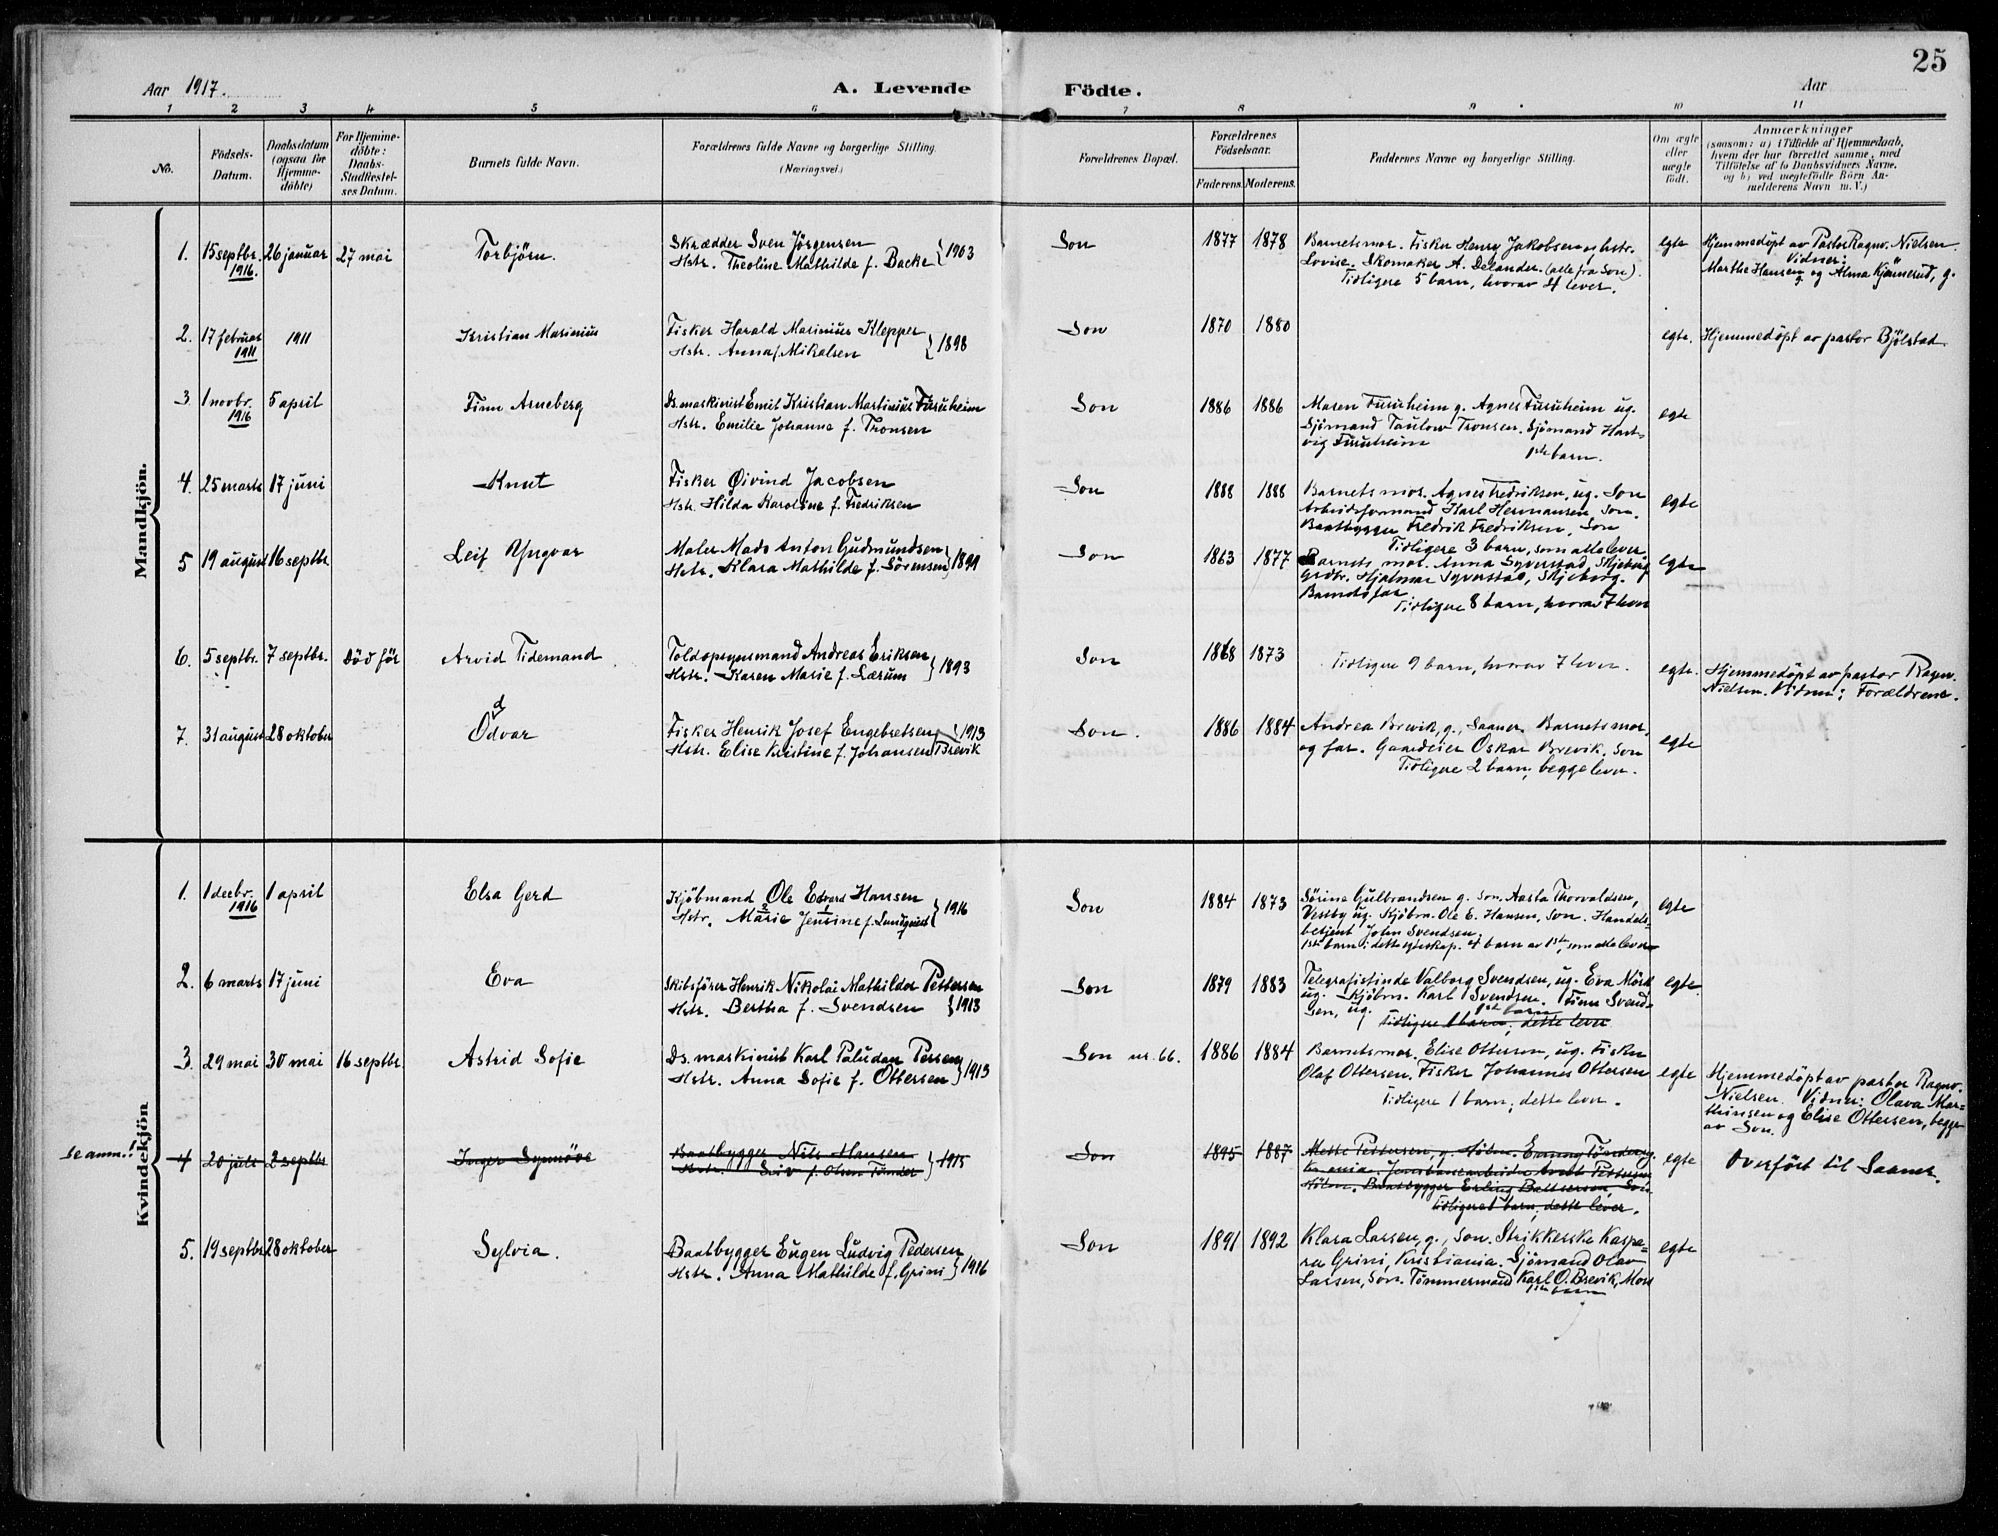 25
Aar 1917.
A. Levende Födte.
Aar
1 2 3 4 5 6 7 8 9 10 11
No.
Födsels-
Datum.
Daabsdatum
(ogsaa for
Hjemme-
döbte)
For Hjemme-
döbte:
Daabs-
Stadfæstel-
ses Datum.
Barnets fulde Navn.
Forældrenes fulde Navne og borgerlige Stilling.
(Næringsvei.)
Forældrenes Bopæl.
Forældrenes
Födselsaar.
Faderens. Moderens.
Faddernes Navne og borgerlige Stilling.
Om ægte
eller
uægte
födt.
Anmærkninger
(saasom: a) i Tilfælde af Hjemmedaab,
hvem der har forrettet samme, med
Tilföielse af to Daabsvidners Navne.
og b) ved uægtefödte Börn An-
melderens Navn m. V.)
Mandkjön.
1. 15 septbr. 1916. 26 januar 27 mai Torbjörn.
Skrædder Sven Jörgensen
Hstr. Theoline Mathilde f. Backe } 1903
Son 1877 1878
Barnets mor. Fisker Henry Jakobsen og hstr.
Lovise. Skomaker A. Delander. (alle fra Son).
Tidligere 5 barn, hvorav 4 lever.
egte
Hjemmedöpt av Pastor Ragnv. Nielsen.
Vidner:
Marthe Hansen g. og Alma Kjönnerud, g.
2. 17 februar 1911 1911 Kristian Marinius
Fisker Harald Marinius Klepper
Hstr. Anna f. Mikalsen } 1898
Son 1870 1880 egte. Hjemmedöpt av pastor Bjölstad.
3. 1 novbr. 1916 5 april Finn Arneberg
Ds. maskinist Emil Kristian Martinius Furuheim
Hstr. Emilie Johanne f. Tronsen
Son 1886 1886
Maren Furuheim g. Agnes Furuheim ug.
Sjömand Taulow Tronsen. Sjömand Hart-
vig Furuheim
1ste barn.
egte
4. 25 marts 17 juni Knut
Fisker Øivind Jacobsen
Hstr. Hilda Karoline f. Fredriksen
Son 1888 1888
Barnets mor. Agnes Fredriksen, ug. Son
Arbeidsformand Karl Hermansen, Son.
Baatbygger Fredrik Fredriksen, Son
Tidligere 3 barn, som alle lever.
egte
5 19 august 16 septbr. Leif Yngvar
Maler Mads Anton Gudmundsen
Hstr. Klara Mathilde f. Sörensen } 1899
Son 1863 1877
Barnets mor. Anna Syverstad, Skjeberg
Grdbr. Hjalmar Syverstad, Skjeberg.
Barnets far
Tidligere 8 barn, hvorav 7 lever
egte
6. 5 septbr. 7 septbr. Död för Arvid Tidemand
Toldopsynsmand Andreas Eriksen
Hstr. Karen Marie f. Lærum } 1893
Son 1868 1873
Tidligere 9 barn, hvorav 7 lever.
egte.
Hjemmedöpt av pastor Ragnv.
Nielsen. Vidner: Forældrene.
7. 31 august 28 oktober Oddvar
Fisker Henrik Josef Engebretsen } 1913
Hstr. Elise Kristine f. Johansen Brevik
Son. 1886 1884
Andrea Brevik, g., Saaner. Barnets mor
og far. Gaardeier Oskar Brevik, Son
Tidligere 2 barn, begge lever.
egte
Kvindekjön
1. 1 decbr. 1916 1 april Elsa Gerd
Kjöbmand Ole Edvard Hansen
Hstr. Marie Jensine f. Lundquist } 1916
Son 1884 1873
Sörine Gulbrandsen g. Son. Aasta Thorvaldsen,
Vestby ug. Kjöbm. Ole E. Hansen, Son. Handels-
betjent John Svendsen.
1ste barn i dette egteskap. 4 barn av 1ste, som alle lever
egte
2. 6 marts 17 juni Eva
Skibsförer Henrik Nikolai Mathilder Pettersen
Hstr. Bertha f. Svendsen } 1913
Son 1879 1883
Telegrafistinde Valborg Svendsen, ug. Eva Mörk
ug. Kjöbm. Karl Svendsen. Finn Svend-
sen, ug. 1ste barn
Tidligere 1 barn, dette lever
egte
3. 29 mai 30 mai 16 septbr. Astrid Sofie
Ds. maskinist Karl Paludan Persen
Hstr. Anna Sofie f. Ottersen } 1913
Son nr. 66. 1886 1884
Barnets mor. Elise Ottersen, ug. Fisker
Olaf Ottersen. Fisker Johannes Ottersen
Tidligere 1 barn; dette lever.
egte
Hjemmedöpt av pastor Ragnv.
Nielsen. Vidner: Olava Mar-
thinsen og Elise Ottersen, begge
av Son.
se anm.! 4 20 juli 2 septbr Inger Synnöve
Baatbygger Nils Hansen
Hstr. Siv f. Olsen Tönder } 1915
Son 1895 1887
Mette Pettersen, g. Hölen.
Hölen. Baatbygger Erling Son
Tidligere 1 barn, dette lever.
egte
Overfört til Saaner.
5. 19 septbr 28 oktober Sylvia.
Baatbygger Eugen Ludvig Pedersen
Hstr. Anna Mathilde f. Grini } 1916
Son 1891 1892
Klara Larsen, g., Son. Strikkerske Kaspa-
ra Grini, Kristiania. Sjömand Olav
Larsen, Son. Tömmermand Karl O. Brevik, Moss
1ste barn
egte